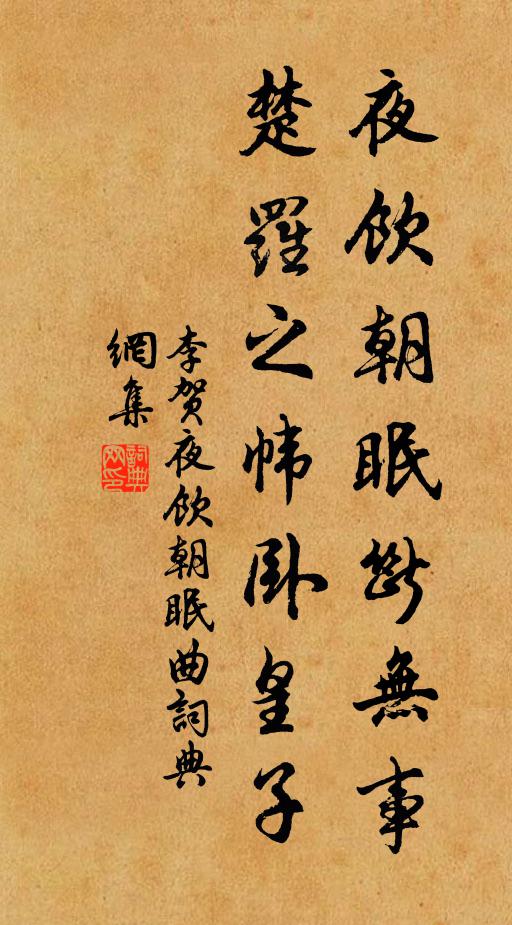 夜飲朝眠斷無事
楚羅之幃卧皇子
李賀夜飲朝眠曲詞典
網集
詞典網印